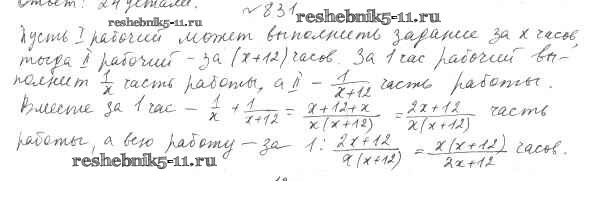 Ответ: 24 детали.
№831
reshebnik5-11.ru
Пусть I рабочий может выполнить задание за x часов,
тогда II рабочий – за (x+12) часов. За 1 час рабочий вы-
полнит 1/x часть работы, а II – 1/(x+12) часть работы.
Вместе за 1 час – 1/x + 1/(x+12) = (x+12+x)/(x(x+12)) = (2x+12)/(x(x+12)) часть
работы, а всю работу – за 1: (2x+12)/(x(x+12)) = (x(x+12))/(2x+12) часов.
reshebnik5-11.ru